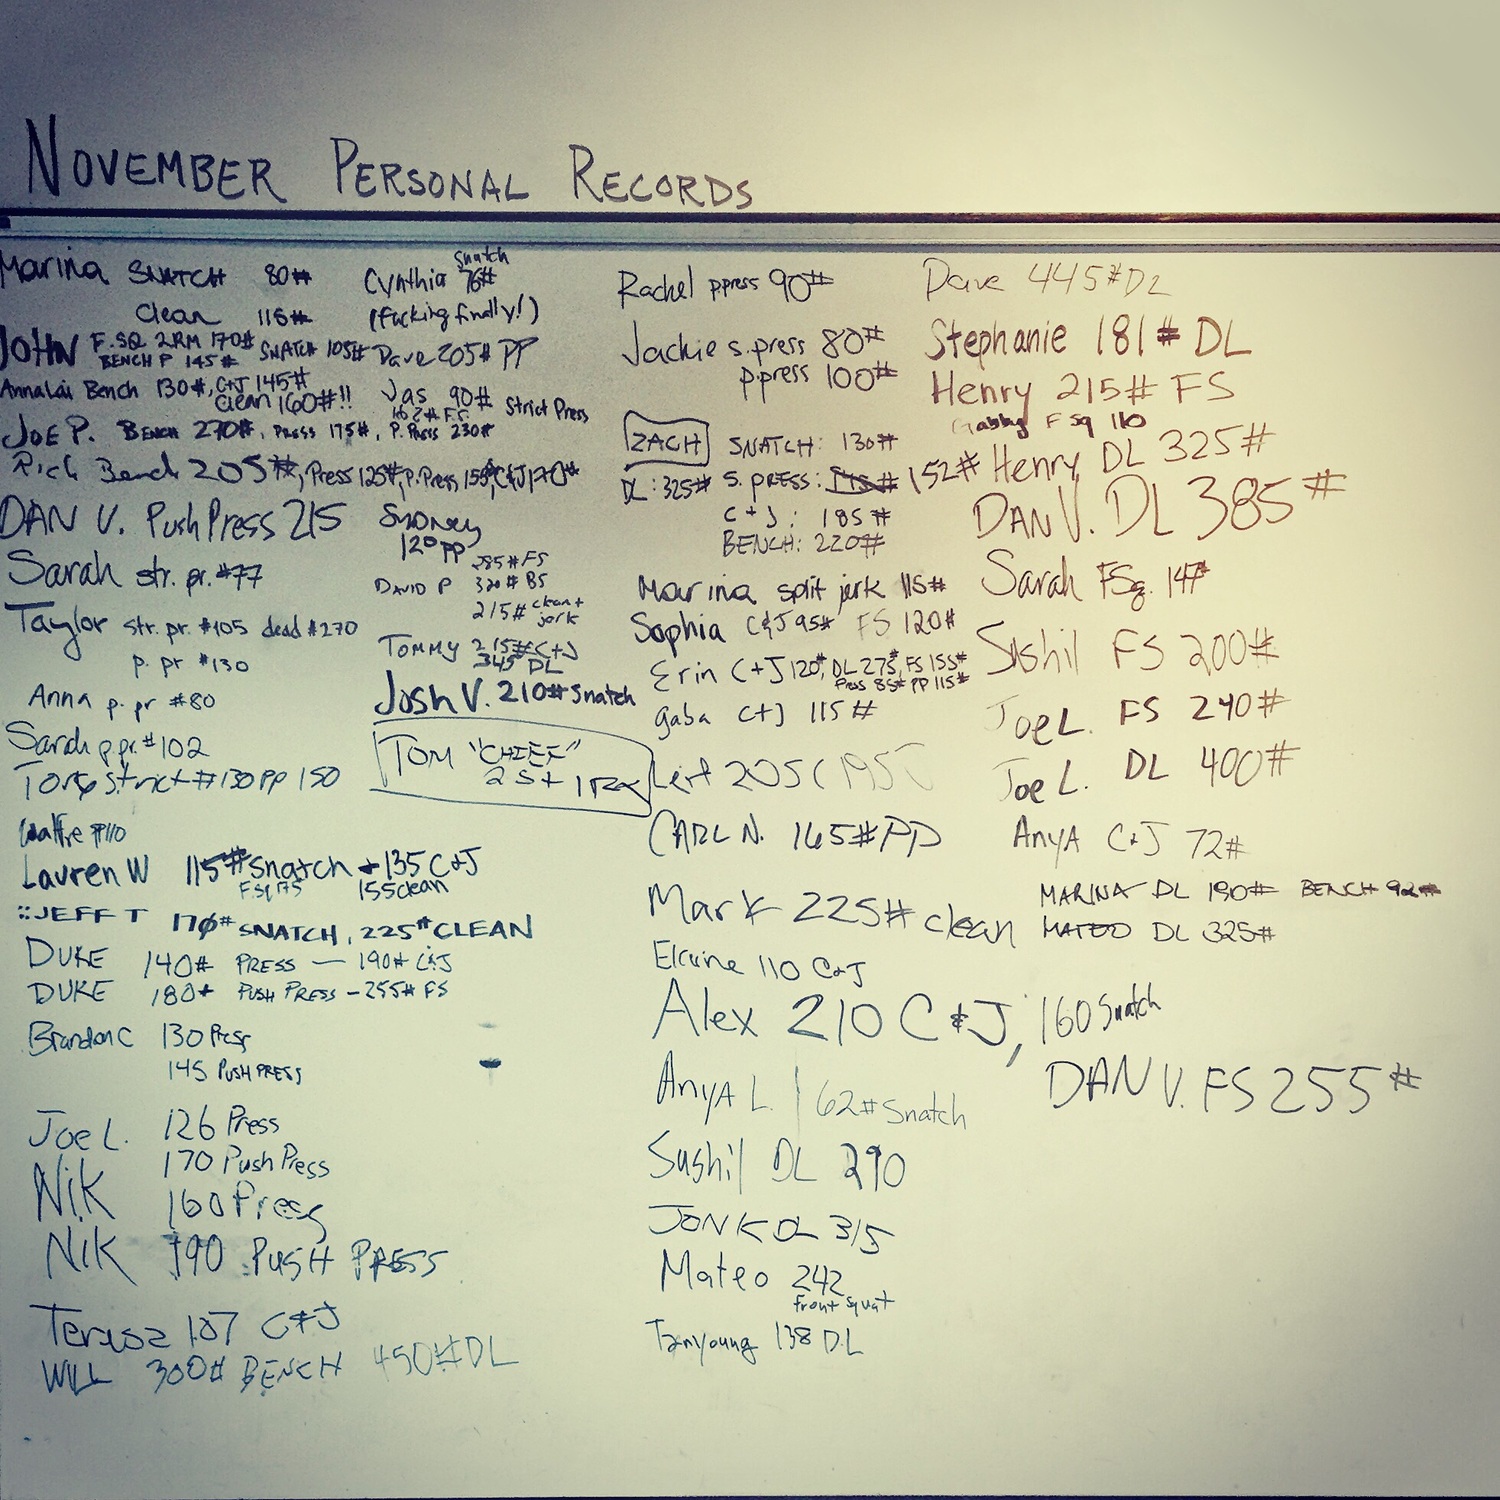 NOVEMBER PERSONAL RECORDS
Marina SNATCH 80#
Clean 115#
JOHN F.SQ 2RM 170# SNATCH 105#
BENCH P 145#
Bench 130#, C+J 145#
Clean 160#!!
JOE P. BENCH 270#, PRESS 175#, P. PRESS 230#
Rich Bench 205#, Press 125#, P. Press 155#, C&J 170#
DAN V. Push Press 215
Sarah str. pr. #77
Taylor str. pr. #105 dead #270
p. pr #130
Anna p. pr #80
Sarah p. pr. #102
strict #130 PP 150
PP 110
Lauren W 115# Snatch + 135 C&J
FSq 175 155 clean
JEFF T 170# SNATCH, 225# CLEAN
DUKE 140# PRESS — 190# C&J
DUKE 180# PUSH PRESS - 255# FS
Brandon C 130 Press
145 PUSH PRESS
Joe L. 126 Press
170 Push Press
Nik 160 Press
Nik 190 PUSH PRESS
Teresa 107 C&J
WILL 300# BENCH 450# DL
Cynthia Snatch 76#
(fucking finally!)
Dave 205# PP
Jas 90# Strict Press
F.S.
Sydney
120 PP
DAVID P 285# FS
320# BS
215# clean + jerk
TOMMY 215# C+J
345 DL
Josh V. 210# Snatch
TOM "CHIEF"
Rachel p press 90#
Jackie s. press 80#
p. press 100#
ZACH SNATCH: 130#
DL: 325# S. PRESS: 152#
C+J: 185#
BENCH: 220#
Marina split jerk 115#
Sophia C&J 95# FS 120#
Erin C+J 120#, DL 275#, FS 155#
Press 85# PP 115#
Gaba C+J 115#
205
CARL N. 165# PP
Mark 225# clean
Elaine 110 C&J
Alex 210 C&J, 160 Snatch
Anya L. 62# Snatch
Sushil DL 290
JON K DL 315
Mateo 242
front squat
Tanyoung 138 DL
Dave 445# DL
Stephanie 181# DL
Henry 215# FS
Gabby F Sq 110
Henry DL 325#
DAN V. DL 385#
Sarah FSq. 147#
Sushil FS 200#
Joe L. FS 240#
Joe L. DL 400#
ANYA C&J 72#
MARINA DL 190# BENCH 92#
MATEO DL 325#
DAN V. FS 255#